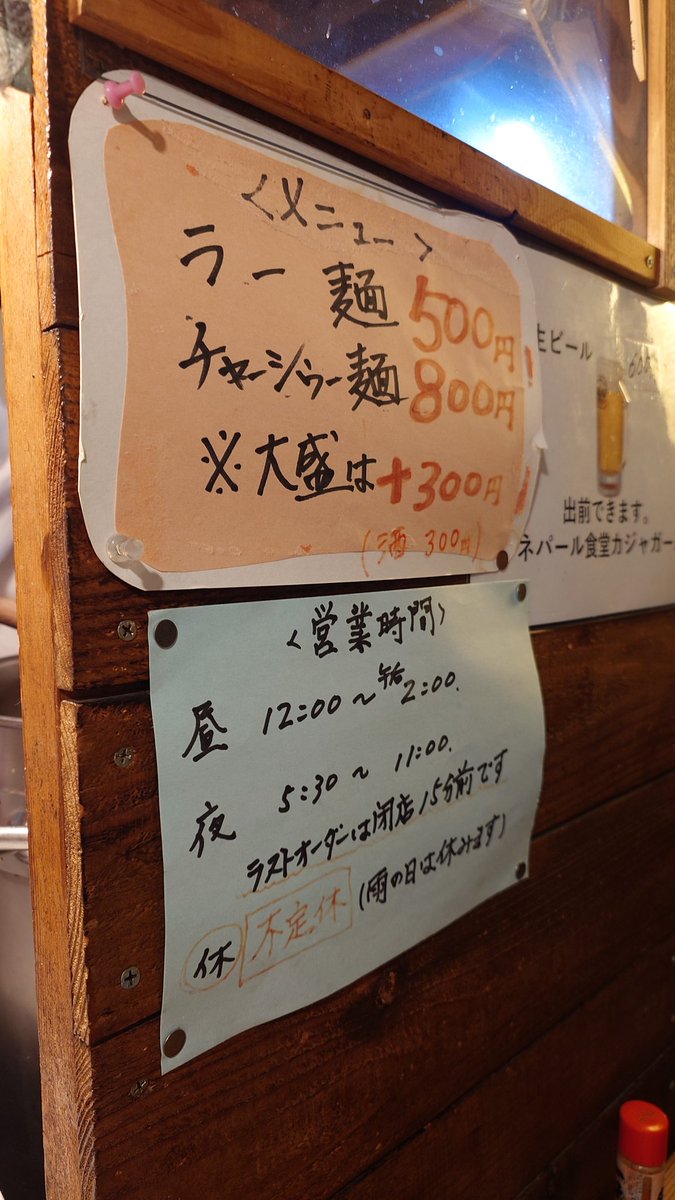 <メニュー>
ラー麺 500円
チャーシュー麺 800円
※大盛は+300円
(酒 300円)
生ビール
出前できます。
ネパール食堂カジャガー
<営業時間>
昼 12:00～午后2:00.
夜 5:30～11:00.
ラストオーダーは閉店15分前です
休 不定休 (雨の日は休みます)